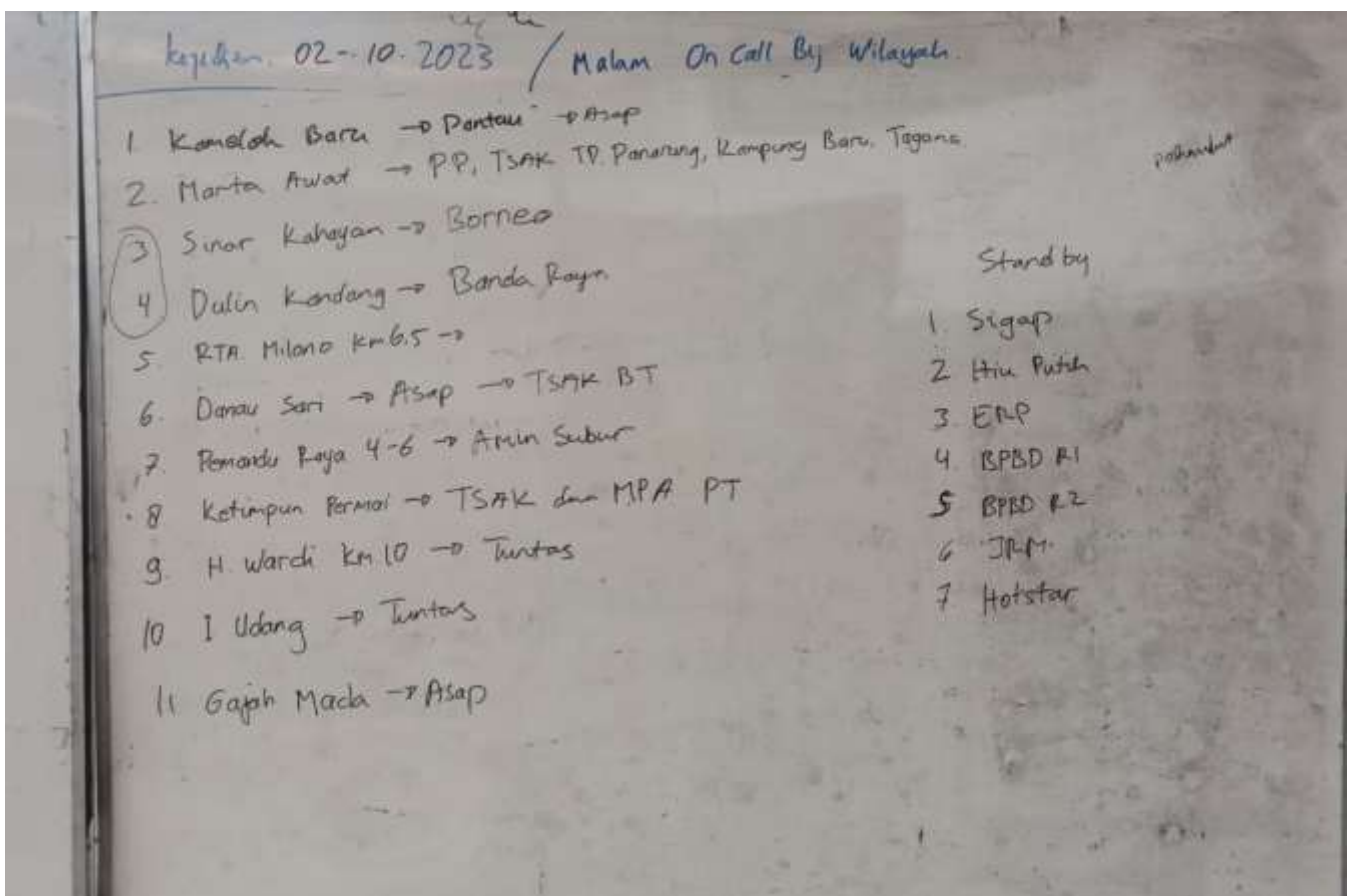 02-10-2023 / Malam On Call By Wilayah
1 Kameloh Baru → Pantau → Asap
2. Marta Awat → P.P, TSAK TD. Panarung, Kampung Baru, Tagana
3 Sinar Kahayan → Borneo
4 Dulin Kandang → Banda Raya
5. RTA Milono Km 6.5 →
6. Danau Sari → Asap → TSAK BT
7. Pemandu Raya 4-6 → Amin Subur
8 Ketimpun Permai → TSAK dan MPA PT
9. H. Wardi Km 10 → Tuntas
10 I Udang → Tuntas
11 Gajah Mada → Asap
Stand by
1. Sigap
2 Hiu Putih
3. ERP
4. BPBD R1
5 BPBD R2
6 JRM.
7 Hotstar